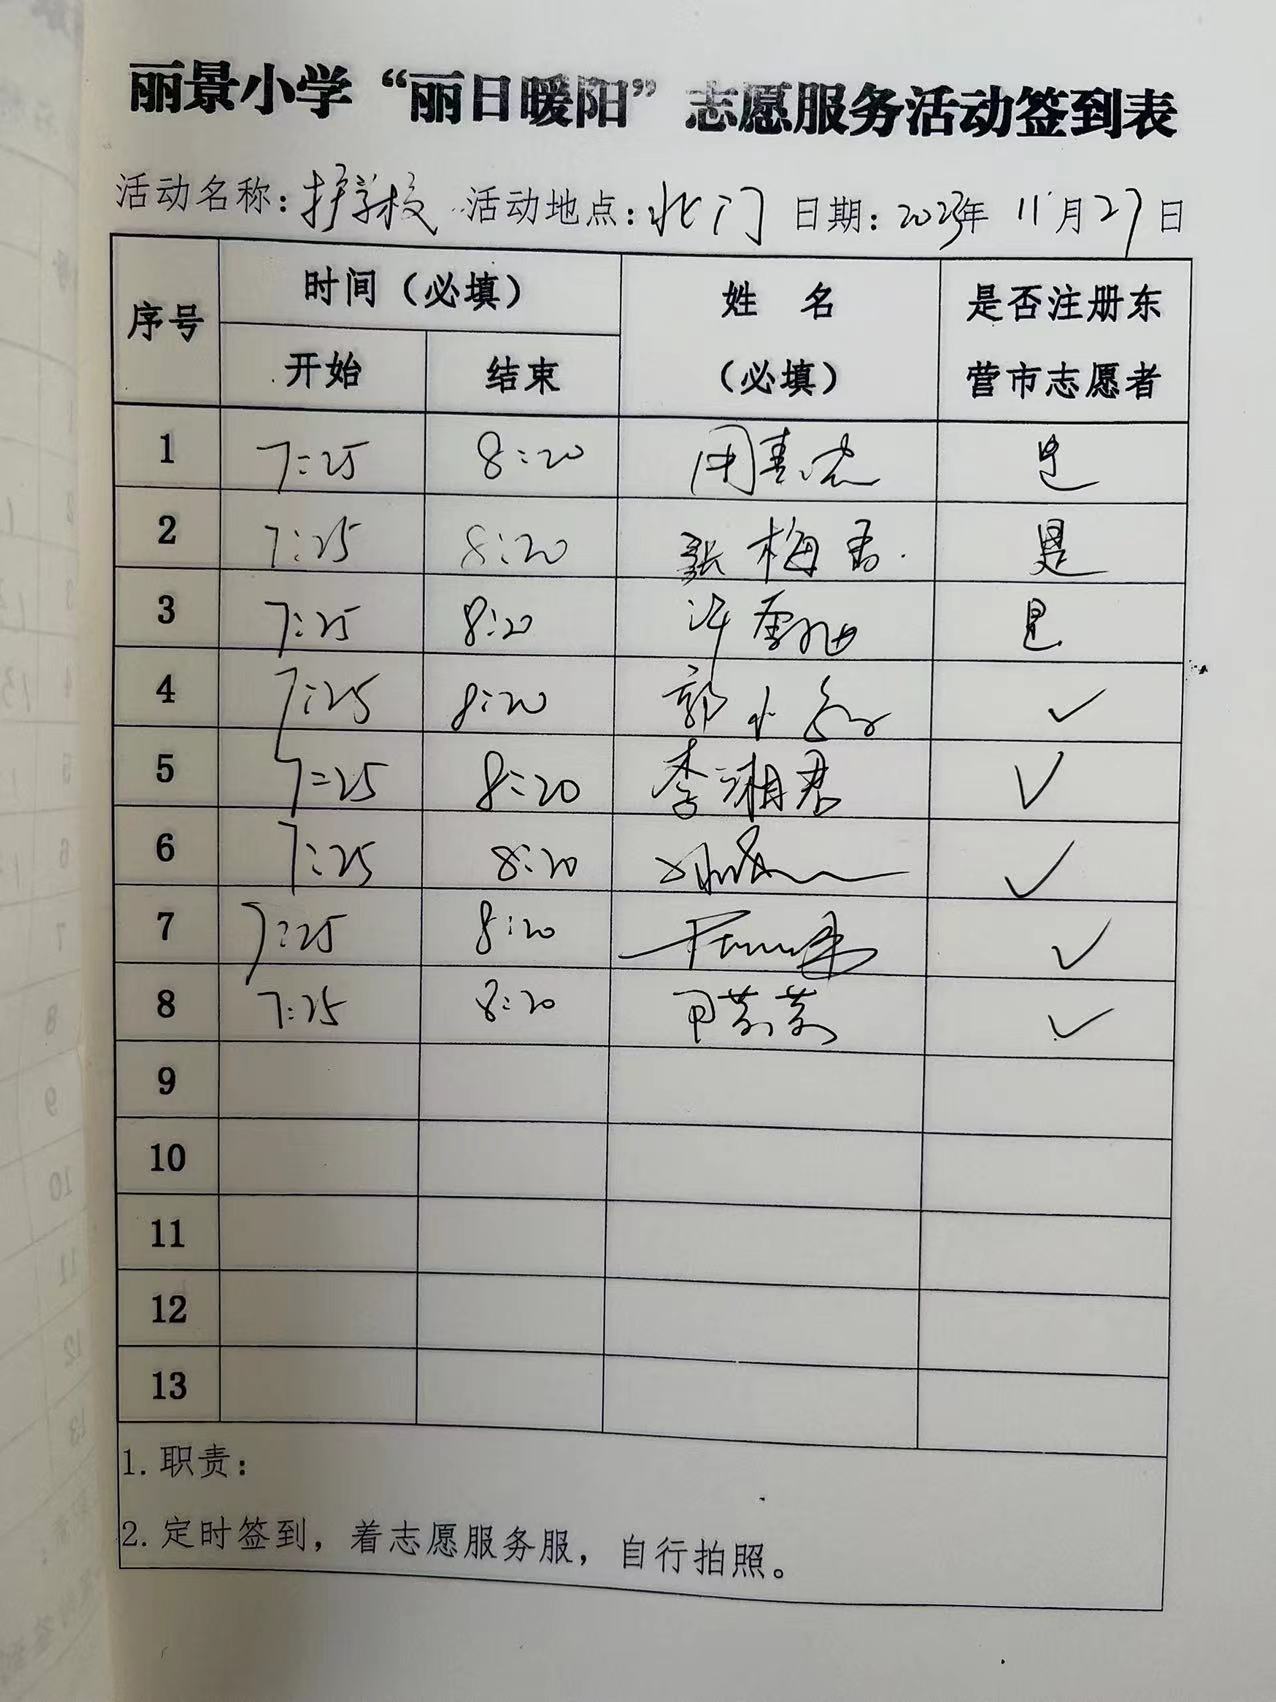 丽景小学“丽日暖阳”志愿服务活动签到表
活动名称：护学校 活动地点：北门 日期：2023年 11月27日
序号 时间（必填） 姓 名（必填） 是否注册东营市志愿者
开始 结束
1 7:25 8:20 是
2 7:25 8:20 张梅香 是
3 7:25 8:20 许 是
4 7:25 8:20 郭小 ✓
5 7:25 8:20 李湘君 ✓
6 7:25 8:20 ✓
7 7:25 8:20 ✓
8 7:25 8:20 ✓
9
10
11
12
13
1. 职责：
2. 定时签到，着志愿服务服，自行拍照。